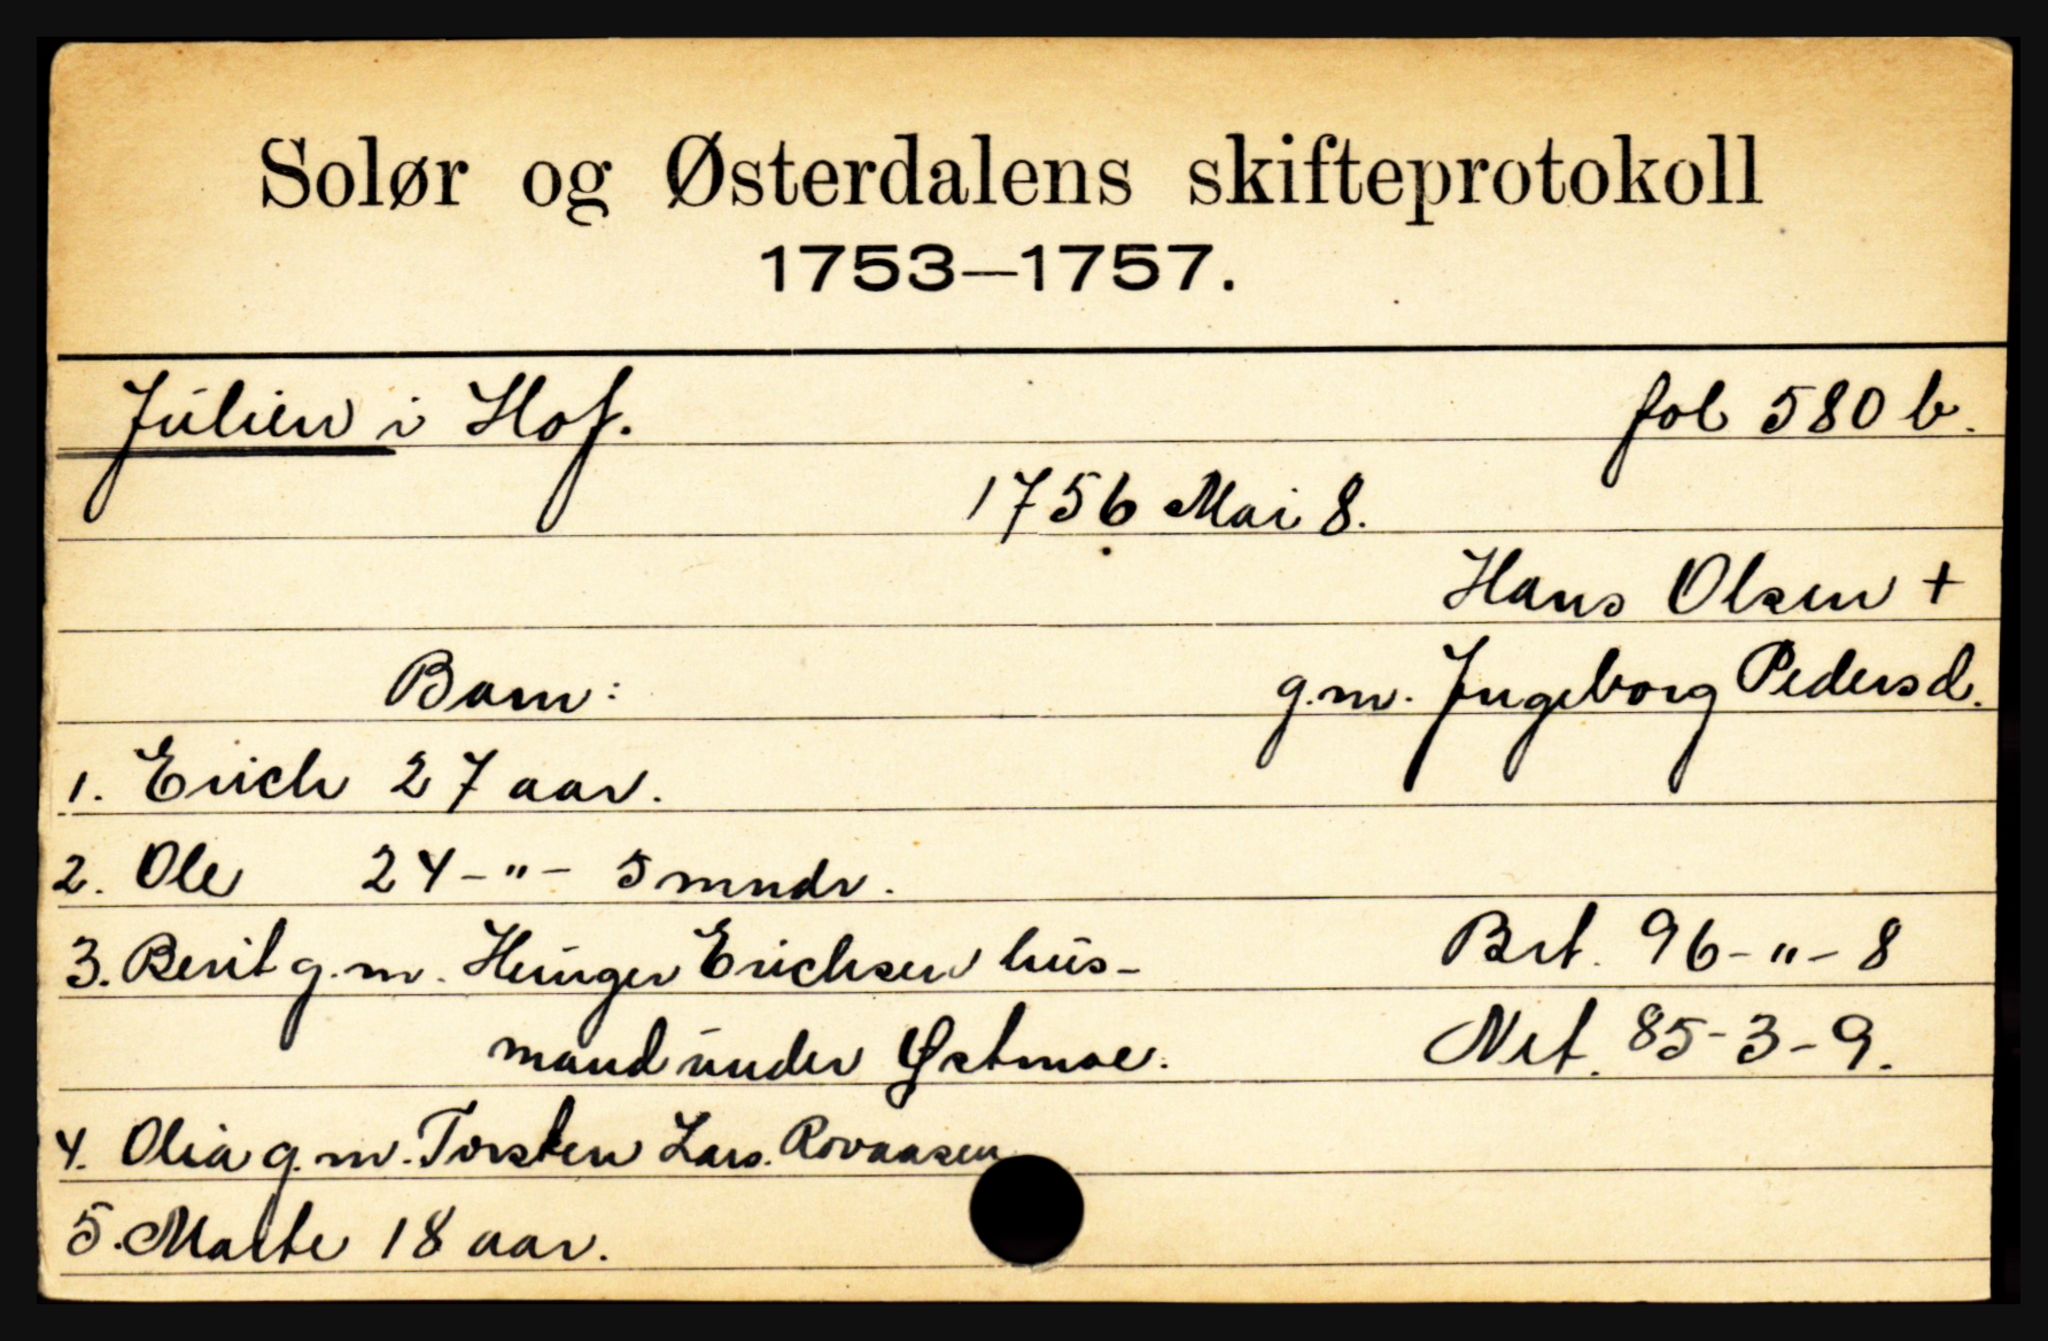 Solør og Østerdalens skifteprotokoll
1753—1757.
Julien i Hof. fol 580 b.
1756 Mai 8.
Hans Olsen +
Barn: g.m. Ingeborg Pedersd.
1. Erich 27 aar.
2. Ole 24 - " - 5 mndr.
3. Berit g.m. Heinger Erichsen hus- Brt. 96 - " - 8
mand under Østmoe. Net. 85 - 3 - 9.
4. Olia g.m. Torsten Lars. Rovaasen
5. Marte 18 aar.